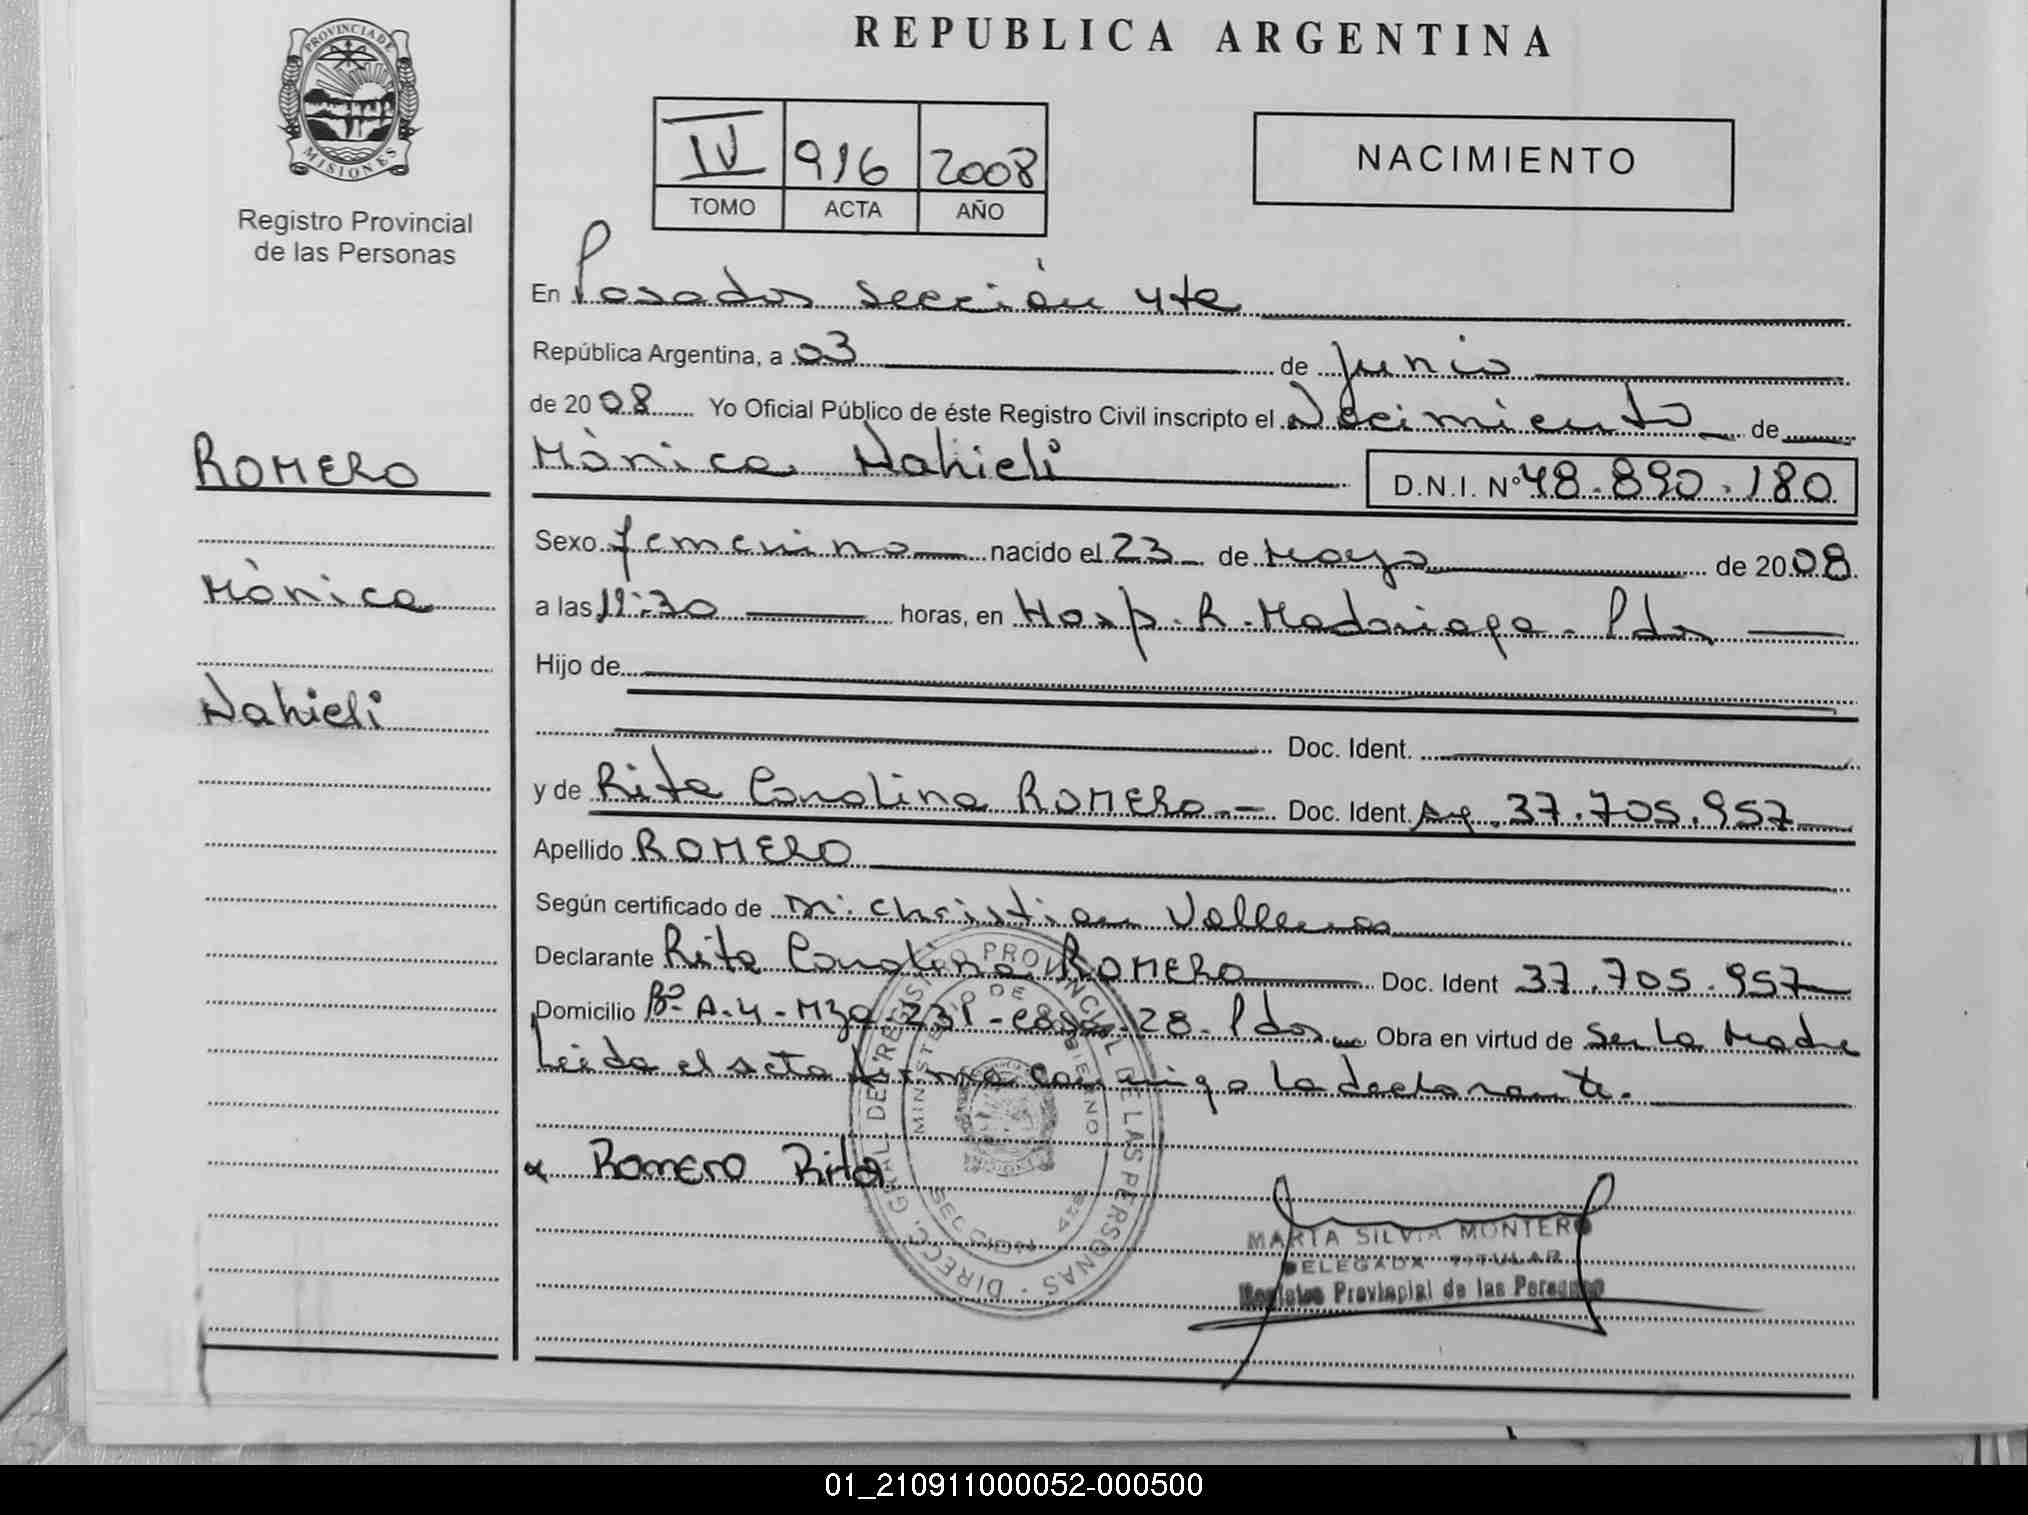 REPUBLICA ARGENTINA
PROVINCIA DE MISIONES
Registro Provincial
de las Personas
IV 916 2008
TOMO ACTA AÑO
NACIMIENTO
En Posadas sección 4ta
República Argentina, a 03 de Junio
de 2008 Yo Oficial Público de éste Registro Civil inscripto el Nacimiento de
Mònica Nahieli D.N.I. Nº 48.890.180
ROMERO
Mònica
Nahieli
Sexo femenino nacido el 23 de Mayo de 2008
a las horas, en Hosp. R. Madariaga - Pdas
Hijo de
Doc. Ident.
y de Rita Carolina ROMERO Doc. Ident. Arg. 37.705.957
Apellido ROMERO
Según certificado de Christian
Declarante Rita Carolina ROMERO Doc. Ident 37.705.957
Domicilio Bº A-4 - Mza - 28 - Pdas Obra en virtud de Ser La Madre
Leida el acta firma conmigo la declarante.
Romero Rita
DIRECC. GRAL DE REGISTRO PROVINCIAL DE LAS PERSONAS
MINISTERIO DE GOBIERNO
MARIA SILVIA MONTERO
DELEGADA TITULAR
Registro Provincial de las Personas
01_210911000052-000500